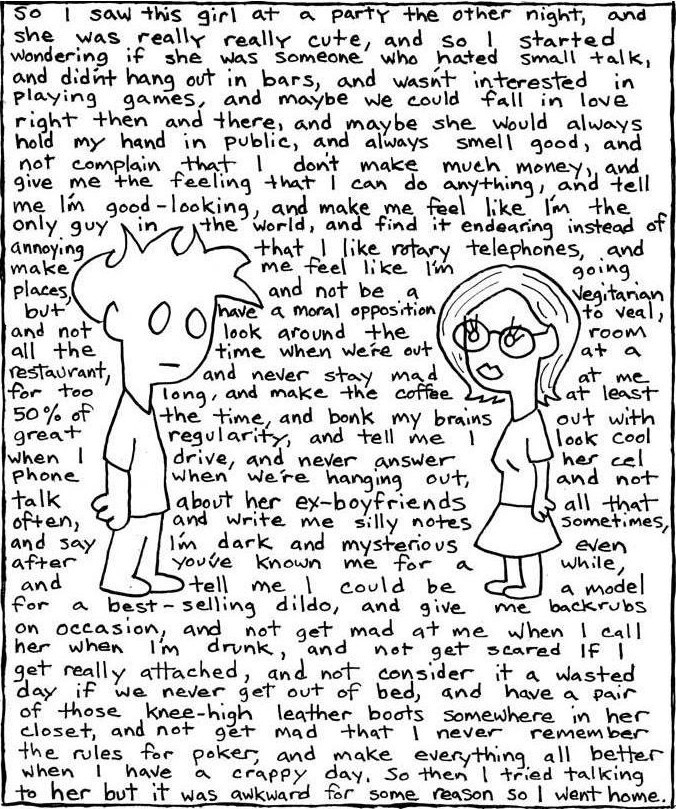 So I saw this girl at a party the other night, and
she was really really cute, and so I started
wondering if she was someone who hated small talk,
and didn't hang out in bars, and wasn't interested in
playing games, and maybe we could fall in love
right then and there, and maybe she would always
hold my hand in public, and always smell good, and
not complain that I don't make much money, and
give me the feeling that I can do anything, and tell
me I'm good-looking, and make me feel like I'm the
only guy in the world, and find it endearing instead of
annoying that I like rotary telephones, and
make me feel like I'm going
places, and not be a vegitarian
but have a moral opposition to veal,
and not look around the room
all the time when we're out at a
restaurant, and never stay mad at me
for too long, and make the coffee at least
50% of the time, and bonk my brains out with
great regularity, and tell me I look cool
when I drive, and never answer her cel
phone when we're hanging out, and not
talk about her ex-boyfriends all that
often, and write me silly notes sometimes,
and say I'm dark and mysterious even
after you've known me for a while,
and tell me I could be a model
for a best-selling dildo, and give me backrubs
on occasion, and not get mad at me when I call
her when I'm drunk, and not get scared If I
get really attached, and not consider it a wasted
day if we never get out of bed, and have a pair
of those knee-high leather boots somewhere in her
closet, and not get mad that I never remember
the rules for poker, and make everything all better
when I have a crappy day. So then I tried talking
to her but it was awkward for some reason so I went home.